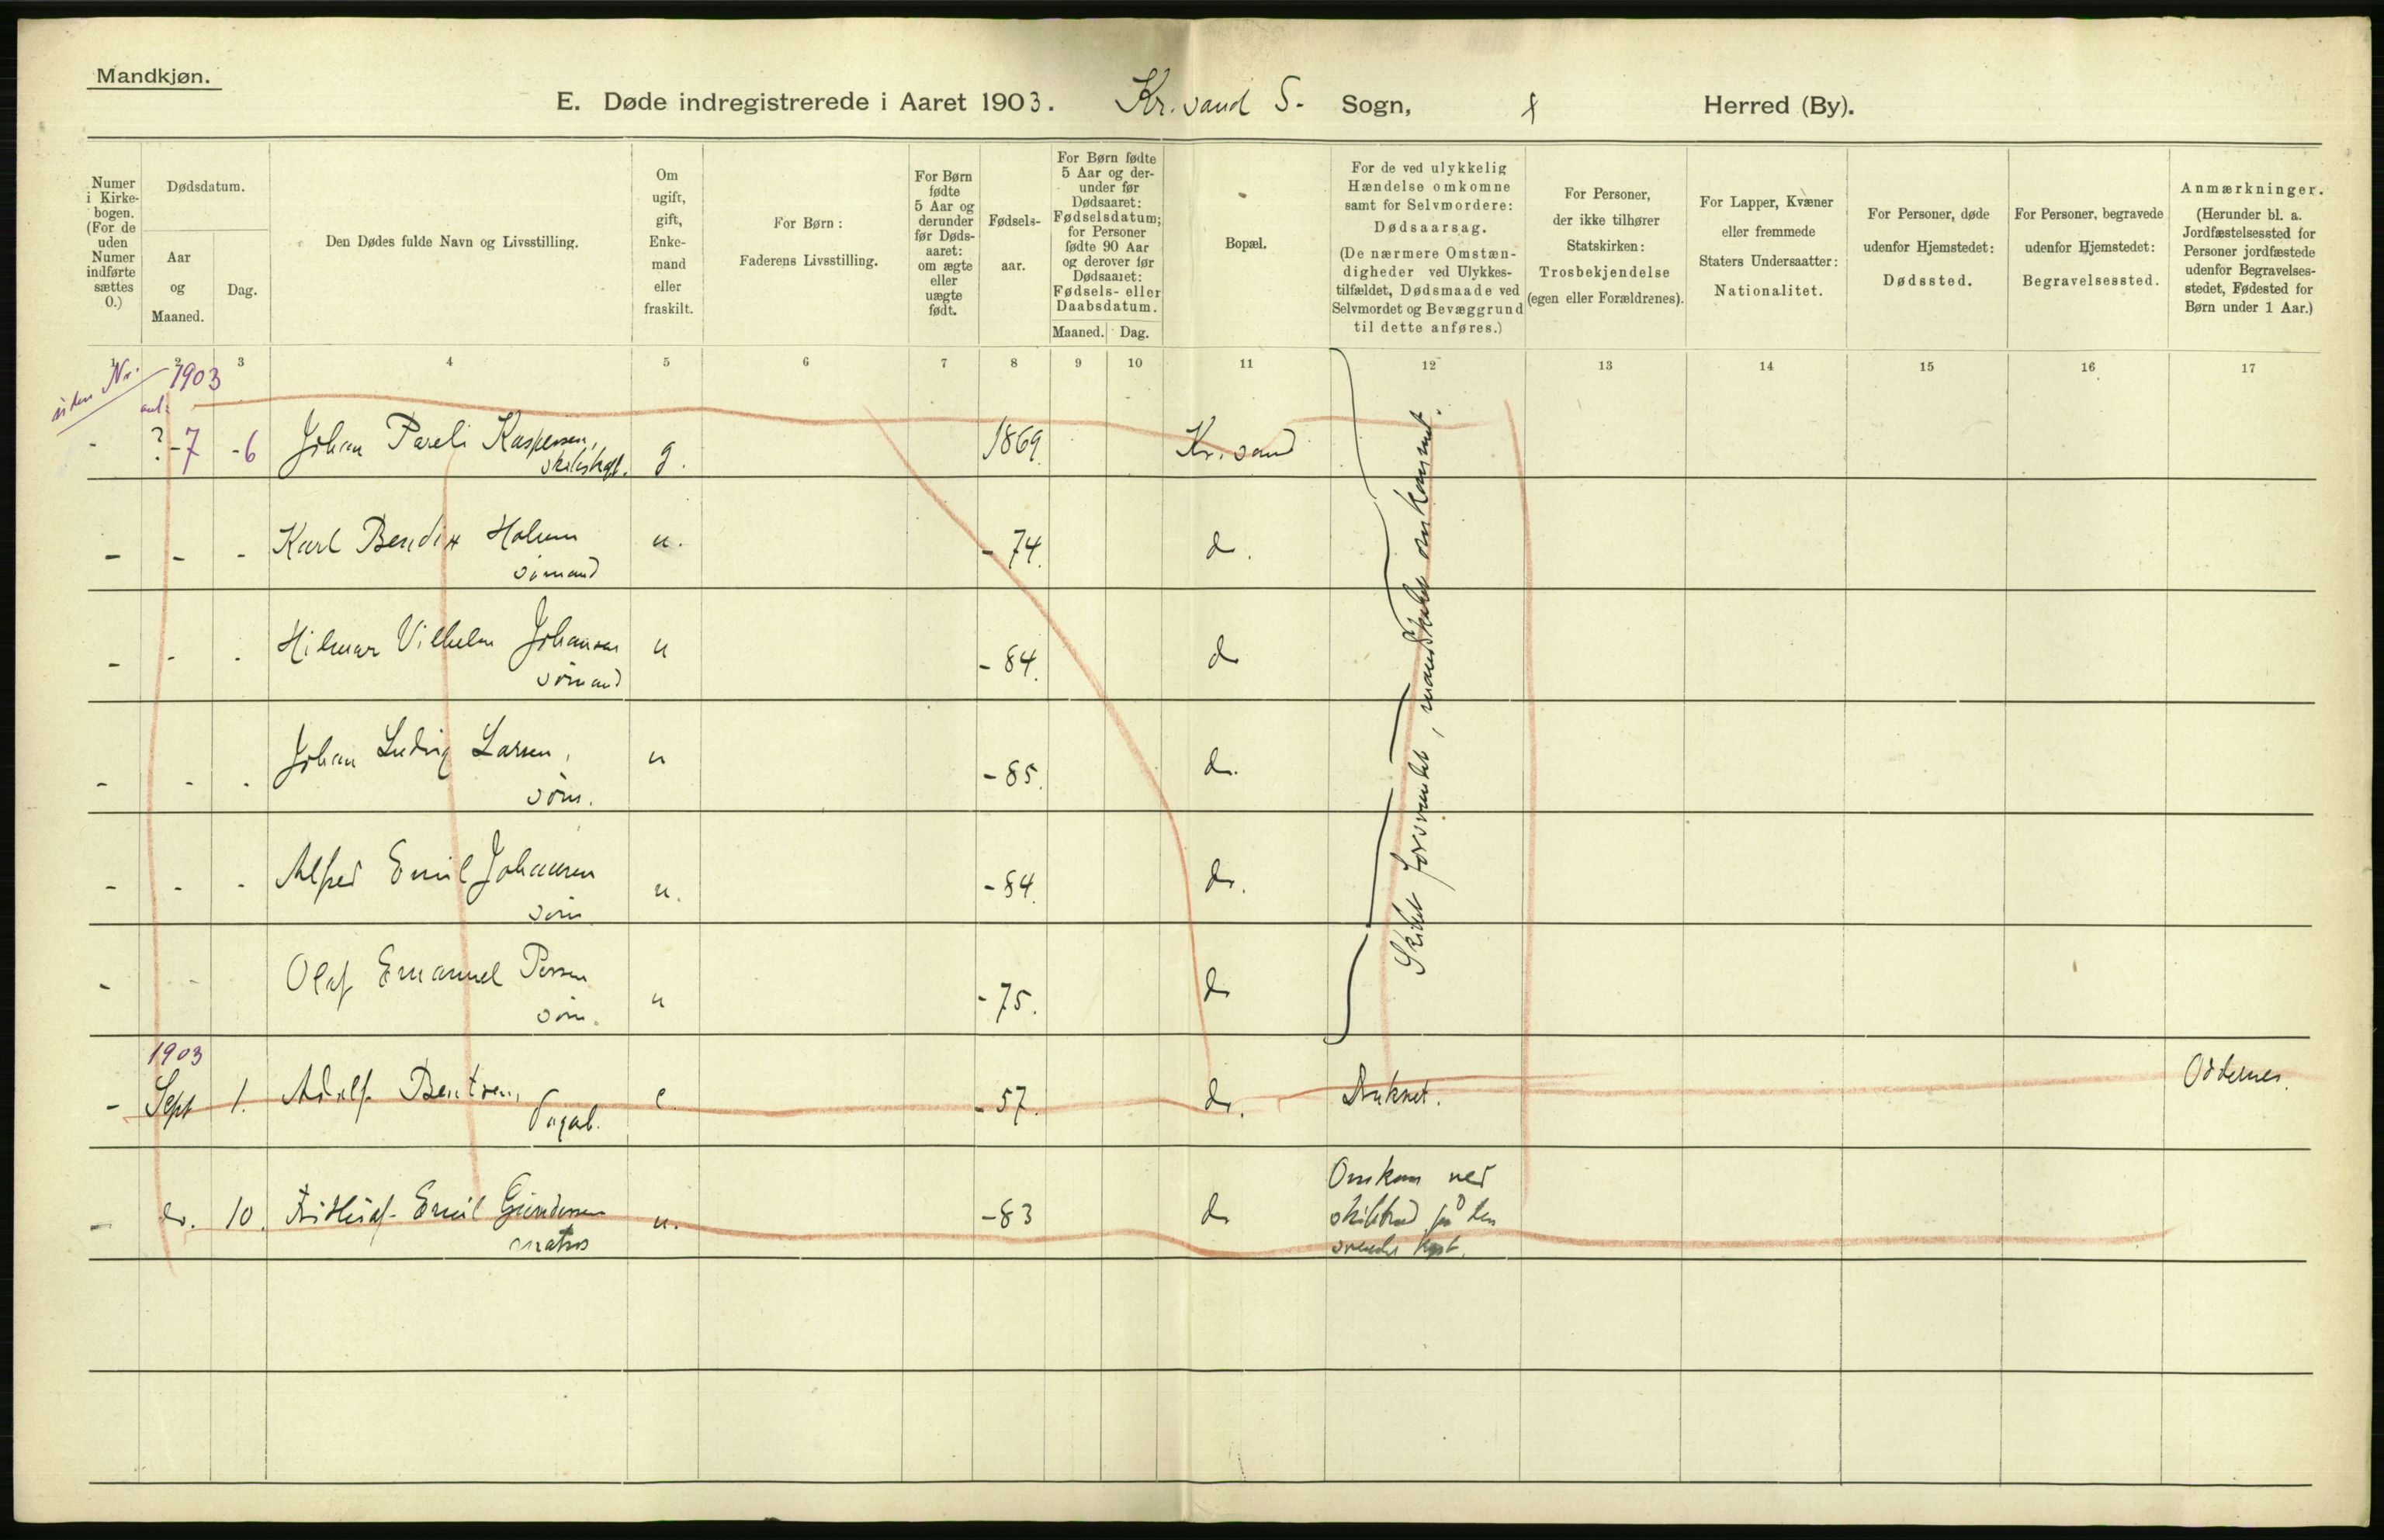 Mandkjøn.
E. Døde indregistrerede i Aaret 1903. Kr.sand S. Sogn, Herred (By).
Numer i Kirkebogen. (For de uden Numer indførte sættes 0.)
Dødsdatum.
Aar og Maaned.
Dag.
Den Dødes fulde Navn og Livsstilling.
Om ugift, gift, Enkemand eller fraskilt.
For Børn:
Faderens Livsstilling.
For Børn fødte 5 Aar og derunder før Dødsaaret: om ægte eller uægte født.
Fødselsaar.
For Børn fødte 5 Aar og derunder før Dødsaaret: Fødselsdatum; for Personer fødte 90 Aar og derover før Dødsaaret: Fødsels- eller Daabsdatum.
Maaned. Dag.
Bopæl.
For de ved ulykkelig Hændelse omkomne samt for Selvmordere: Dødsaarsag. (De nærmere Omstændigheder ved Ulykkestilfældet, Dødsmaade ved Selvmordet og Bevæggrund til dette anføres.)
For Personer, der ikke tilhører Statskirken: Trosbekjendelse (egen eller Forældrenes).
For Lapper, Kvæner eller fremmede Staters Undersaatter: Nationalitet.
For Personer, døde udenfor Hjemstedet: Dødssted.
For Personer, begravede udenfor Hjemstedet: Begravelsessted.
Anmærkninger. (Herunder bl. a. Jordfæstelsessted for Personer jordfæstede udenfor Begravelsesstedet, Fødested for Børn under 1 Aar.)
1 2 3 4 5 6 7 8 9 10 11 12 13 14 15 16 17
uden Nr. 1903
ant.
- ?-7 -6 Johan Kaspersen, g. 1869. Kr.sand
- - - Karl Bendix Holum u. - 74. do.
sømand
- - - Hilmar Vilhelm Johansen u - 84. do
sømand
- - - Johan Ludvig Larsen, u - 85. do.
søm.
- - - Alfred Emil Johansen u. - 84. do.
søm
- - - Olaf Emanuel u - 75. do
søm.
Skibet forsvundet, mandskabet omkommet.
1903
- Sept 1. Adolf Bentsen, e. - 57. do. Druknet. Oddernes.
- do. 10. Fridthjof Emil Gundersen u. - 83 do Omkom ved
matros skibbrud på den
svenske kyst.